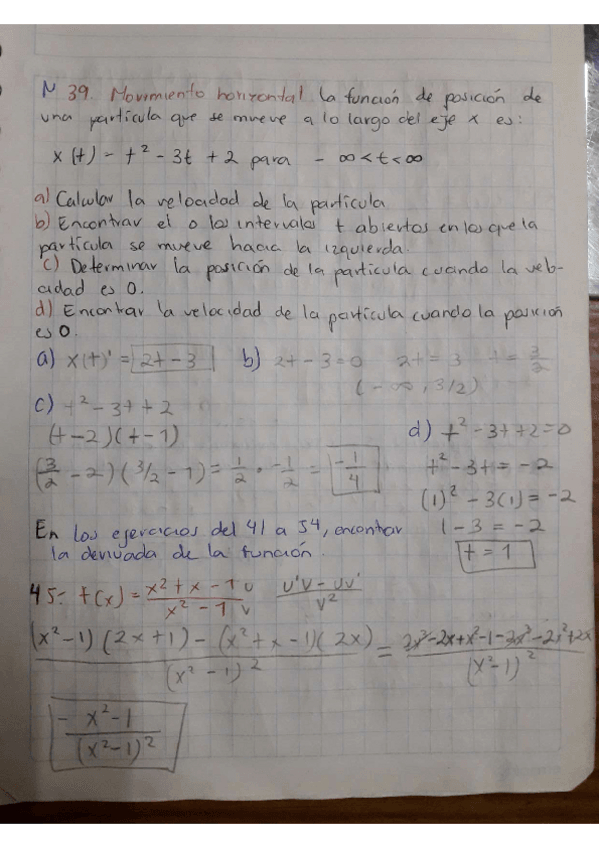 N 39. Movimiento horizontal La función de posición de
una partícula que se mueve a lo largo del eje x es:
x(t) = t² - 3t + 2 para - ∞ < t < ∞
a) Calcular la velocidad de la partícula
b) Encontrar el o los intervalos t abiertos en los que la
partícula se mueve hacia la izquierda.
c) Determinar la posición de la partícula cuando la velo-
cidad es 0.
d) Encontrar la velocidad de la partícula cuando la posición
es 0.
a) x(t)' = 2t - 3 b) 2t - 3 = 0 2t = 3 t = 3/2
(- ∞, 3/2)
c) t² - 3t + 2
(t - 2)(t - 1)
(3/2 - 2)(3/2 - 1) = 1/2 · -1/2 = -1/4
d) t² - 3t + 2 = 0
t² - 3t = -2
(1)² - 3(1) = -2
1 - 3 = -2
t = 1
En los ejercicios del 41 a 54, encontrar
la derivada de la función.
45: f(x) = x² + x - 1 u / x² - 1 v u'v - uv' / v²
(x² - 1)(2x + 1) - (x² + x - 1)(2x) / (x² - 1)² = 2x³ - 2x + x² - 1 - 2x³ - 2x² + 2x / (x² - 1)²
- x² - 1 / (x² - 1)²